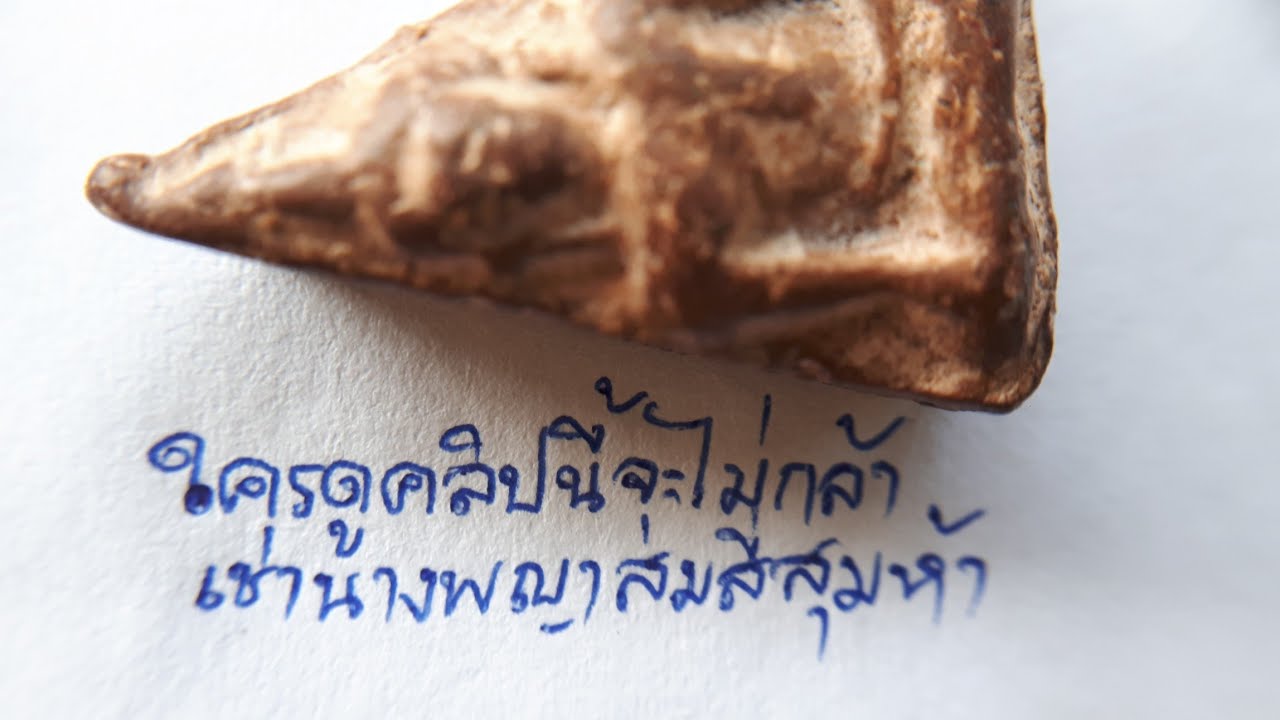 ใครดูคลิปนี้จะไม่กล้า
เช่านางพญาสุ่มสี่สุ่มห้า